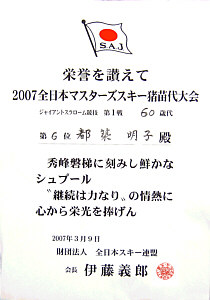 S.A.J
栄誉を讃えて
2007全日本マスターズスキー猪苗代大会
ジャイアントスラローム競技 第1戦 60歳代
第6位 都築 明子 殿
秀峰磐梯に刻みし鮮かな
シュプール
“継続は力なり”の情熱に
心から栄光を捧げん
2007年3月9日
財団法人 全日本スキー連盟
会長 伊藤義郎